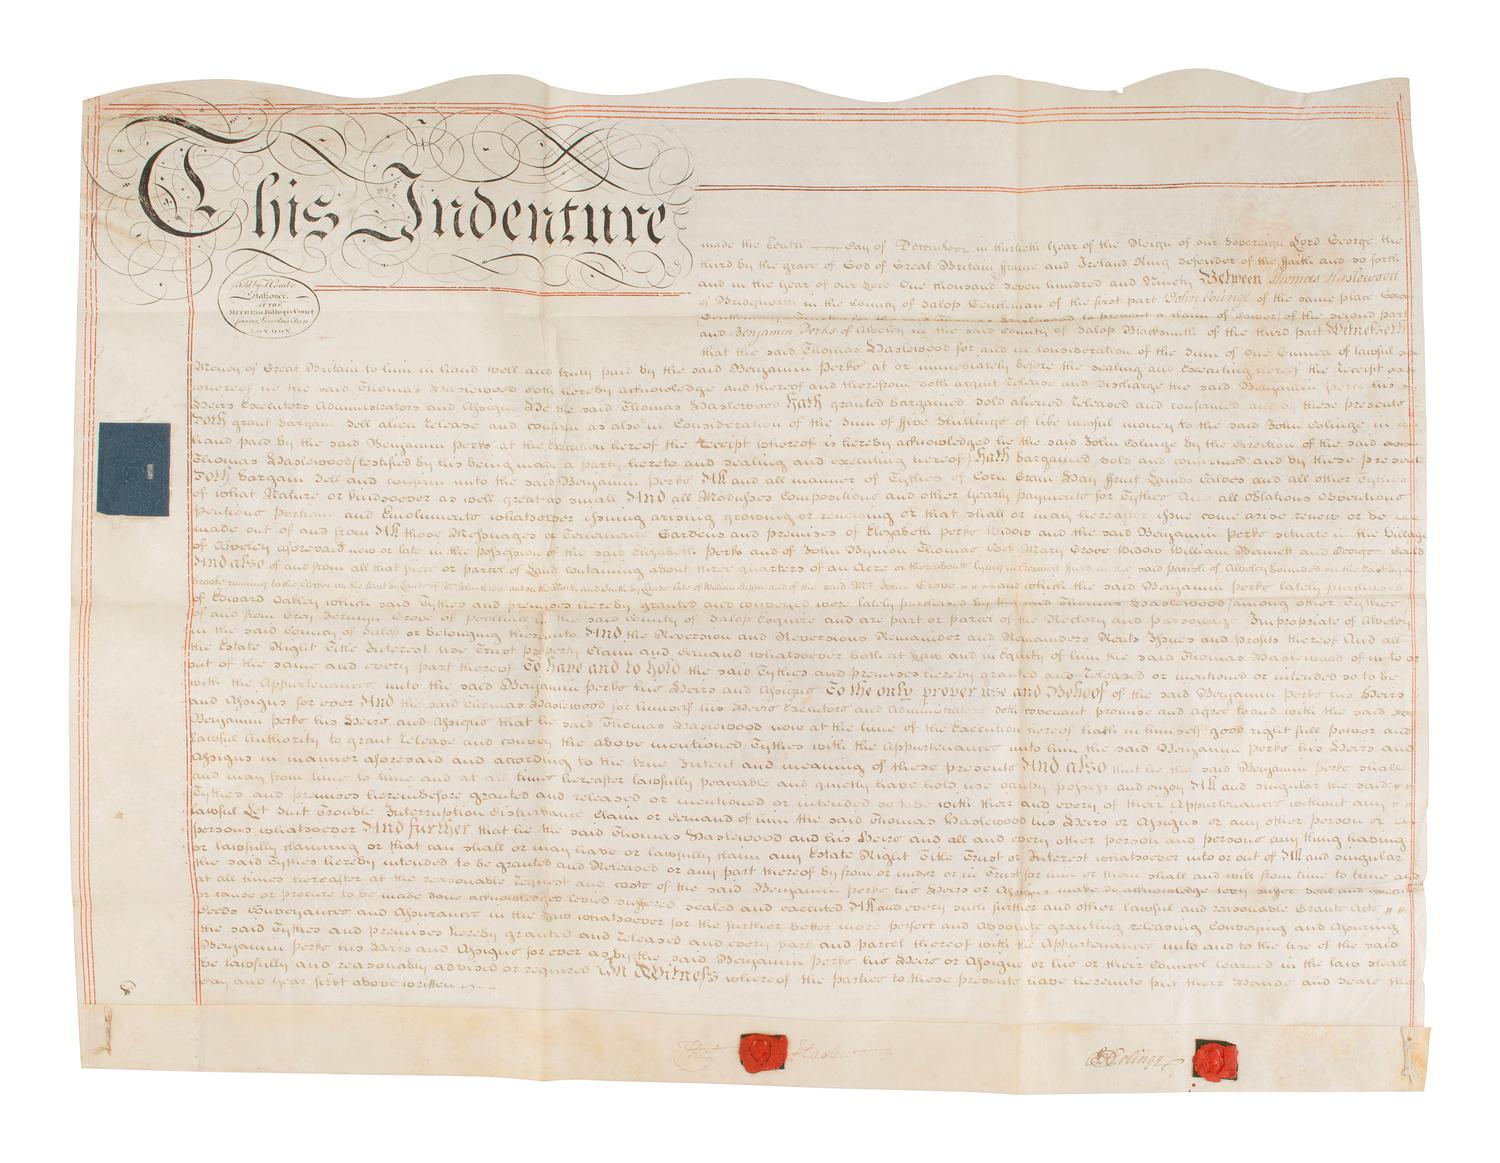 This Indenture
made the Tenth day of December in thirtieth Year of the Reign of our Sovereign Lord George the
third by the grace of God of Great Britain France and Ireland King defender of the faith and so forth
and in the Year of our Lord One thousand seven hundred and Ninety Between Thomas Haslewood
of Bridgnorth in the County of Salop Gentleman of the first part John Colinge of the same place
to prevent a claim of dower of the second part
and Benjamin Perks of Alveley in the said County of Salop Blacksmith of the third part Witnesseth
that the said Thomas Haslewood for and in consideration of the sum of One Guinea of lawful
Sold by
Stationer
AT THE
MITRE in Bishops Court
Lincolns Inn
LONDON
Money of Great Britain to him in hand well and truly paid by the said Benjamin Perks at or immediately before the sealing and Executing hereof the Receipt
whereof he the said Thomas Haslewood doth hereby acknowledge and thereof and therefrom doth acquit release and discharge the said Benjamin Perks his
Heirs Executors Administrators and Assigns He the said Thomas Haslewood Hath granted bargained sold aliened released and confirmed and by these presents
Doth grant bargain sell alien release and confirm as also in Consideration of the sum of ffive Shillings of like lawful money to the said John Colinge in
hand paid by the said Benjamin Perks at the Execution hereof the Receipt whereof is hereby acknowledged he the said John Colinge by the direction of the said
Thomas Haslewood (testified by his being made a party hereto and sealing and executing hereof) Hath bargained sold and confirmed and by these presents
Doth bargain sell and confirm unto the said Benjamin Perks All and all manner of Tythes of Corn Grain Hay ffruit Lambs Calves and all other Tythes
of what Nature or kindsoever as well great as small And all Moduses Compositions and other Yearly payments for Tythes And all Oblations Obventions
Pentions Portions and Emoluments whatsoever issuing arising growing or renewing or that shall or may hereafter issue come arise renew or be
made out of and from All those Messuages or Tenements Gardens and premises of Elizabeth Perks Widow and the said Benjamin Perks situate in the Village
of Alveley aforesaid now or late in the possession of the said Elizabeth Perks and of John Thomas Mary Grove Widow William Bennett and George
And also of and from all that piece or parcel of Land containing about three quarters of an Acre or thereabouts lying in in the said parish of Alveley bounded on the East by a
brooke running to the on the West by Lands of Mr John Grove and on the North and South by Lands late of William and of the said Mr John Grove and which the said Benjamin Perks lately purchased
of Edward Oakley which said Tythes and premises hereby granted and conveyed were lately purchased by the said Thomas Haslewood (among other Tythes)
of and from Grey Jermyn Grove of Poolhall in the said County of Salop Esquire and are part or parcel of the Rectory and parsonage Impropriate of Alveley
in the said County of Salop or belonging thereunto And the Reversion and Reversions Remainder and Remainders Rents Issues and profits thereof And all
the Estate Right Title Interest use Trust property Claim and demand whatsoever both at Law and in Equity of him the said Thomas Haslewood of in to or
out of the same and every part thereof To have and to hold the said Tythes and premises hereby granted and released or mentioned or intended so to be
with the Appurtenances unto the said Benjamin Perks his Heirs and Assigns To the only proper use and Behoof of the said Benjamin Perks his Heirs
and Assigns for ever And the said Thomas Haslewood for himself his Heirs Executors and Administrators doth covenant promise and Agree to and with the said
Benjamin Perks his Heirs and Assigns that he said Thomas Haslewood now at the time of the Execution hereof hath in himself good right full power and
lawful Authority to grant release and convey the above mentioned Tythes with the Appurtenances unto him the said Benjamin Perks his Heirs and
Assigns in manner aforesaid and according to the true Intent and meaning of these presents And also that he the said Benjamin Perks shall
and may from time to time and at all times hereafter lawfully peaceable and quietly have hold use occupy possess and enjoy All and singular the said
Tythes and premises hereinbefore granted and released or mentioned or intended so to be with their and every of their Appurtenances without any
lawful Let Suit Trouble Interruption Disturbance Claim or demand of him the said Thomas Haslewood his Heirs or Assigns or any other person or
persons whatsoever And further that he the said Thomas Haslewood and his Heirs and all and every other person and persons any thing having
or lawfully claiming or that can shall or may have or lawfully claim any Estate Right Title Trust or Interest whatsoever into or out of All and singular
the said Tythes hereby intended to be granted and Released or any part thereof by from or under or in Trust for him or them shall and will from time to time and
at all times hereafter at the reasonable request and costs of the said Benjamin Perks his Heirs or Assigns make do acknowledge levy suffer seal and execute
or cause or procure to be made done acknowledged levied suffered sealed and executed All and every such further and other lawful and reasonable Grants Acts
Deeds Conveyances and Assurances in the Law whatsoever for the further better more perfect and Absolute granting releasing Conveying and Assuring
the said Tythes and premises hereby granted and released and every part and parcel thereof with the Appurtenances unto and to the use of the said
Benjamin Perks his Heirs and Assigns for ever as by the said Benjamin Perks his Heirs or Assigns or his or their Councel learned in the law shall
be lawfully and reasonably advised or required In Witness whereof the parties to these presents have hereunto put their Hands and Seals the
day and Year first above written
Thos Haslewood
Jno Colinge